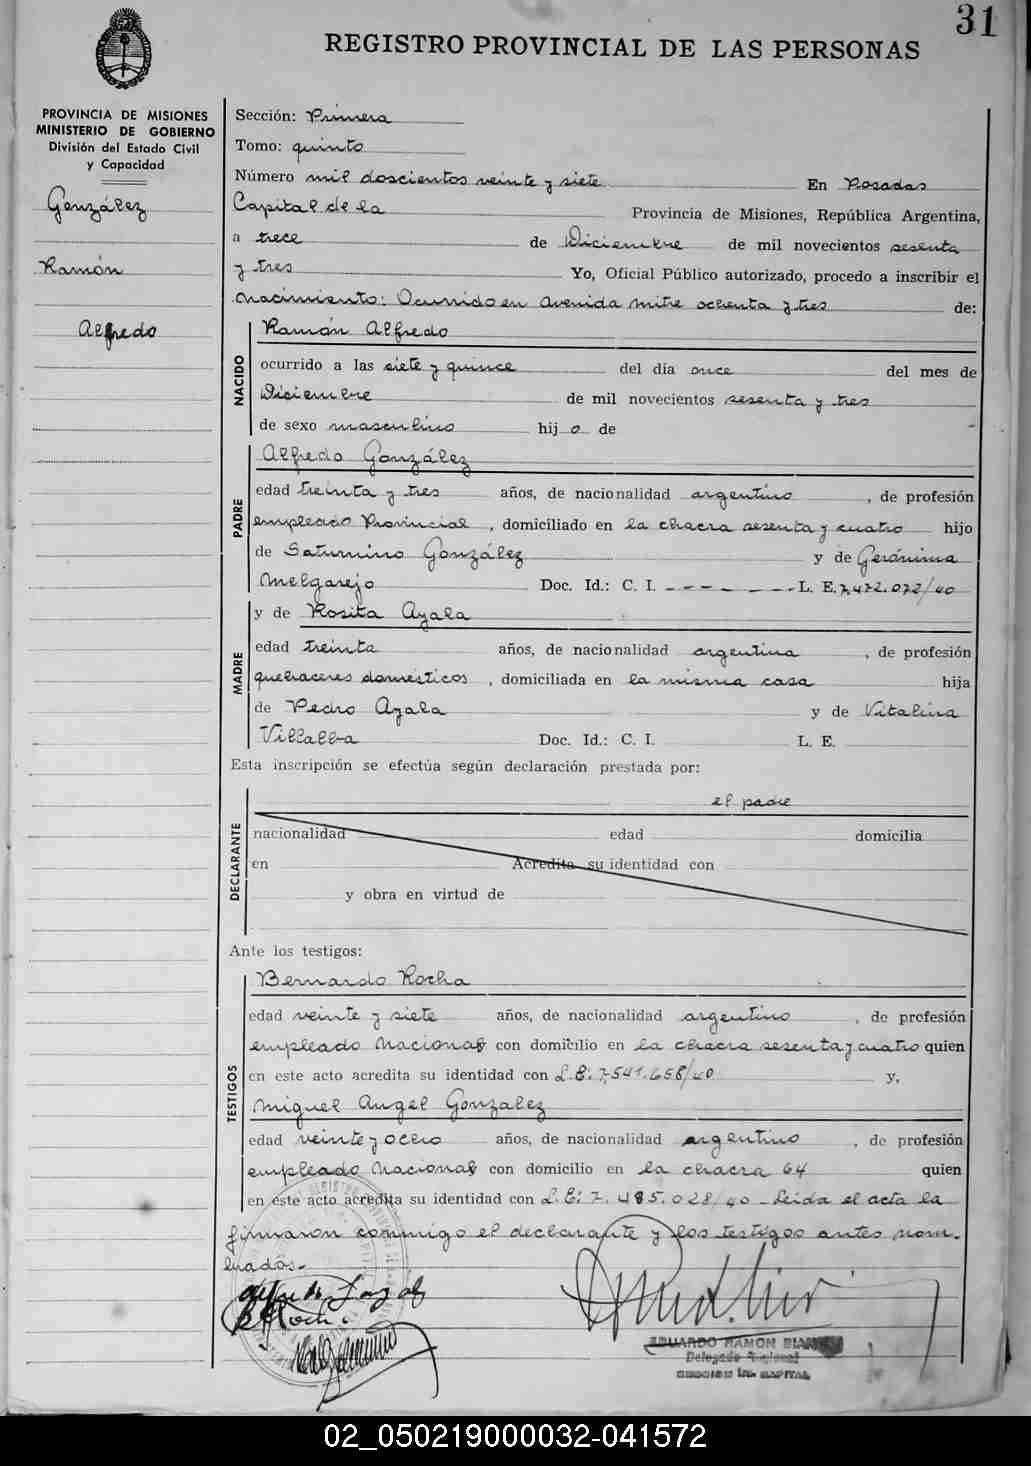 31
REGISTRO PROVINCIAL DE LAS PERSONAS
PROVINCIA DE MISIONES
MINISTERIO DE GOBIERNO
División del Estado Civil
y Capacidad
González
Ramón
Alfredo
Sección: Primera
Tomo: quinto
Número mil doscientos veinte y siete En Posadas
Capital de la Provincia de Misiones, República Argentina,
a trece de Diciembre de mil novecientos sesenta
y tres Yo, Oficial Público autorizado, procedo a inscribir el
nacimiento: Ocurrido en avenida mitre ochenta y tres de:
NACIDO
Ramón Alfredo
ocurrido a las siete y quince del día once del mes de
Diciembre de mil novecientos sesenta y tres
de sexo masculino hijo de
PADRE
Alfredo González
edad treinta y tres años, de nacionalidad argentino, de profesión
empleado Provincial, domiciliado en la chacra sesenta y cuatro hijo
de Saturnino González y de Gerónima
Melgarejo Doc. Id.: C. I. - - - - - - L. E. 7.472.072/40
y de Rosita Ayala
MADRE
edad treinta años, de nacionalidad argentina, de profesión
quehaceres domésticos, domiciliada en la misma casa hija
de Pedro Ayala y de Vitalina
Villalba Doc. Id.: C. I. L. E.
Esta inscripción se efectúa según declaración prestada por:
DECLARANTE
el padre
nacionalidad edad domicilia
en Acredita su identidad con
y obra en virtud de
Ante los testigos:
TESTIGOS
Bernardo Rocha
edad veinte y siete años, de nacionalidad argentino, de profesión
empleado Nacional con domicilio en la chacra sesenta y cuatro quien
en este acto acredita su identidad con L.E. 7.541.658/40 y,
Miguel Angel Gonzalez
edad veinte y ocho años, de nacionalidad argentino, de profesión
empleado Nacional con domicilio en la chacra 64 quien
en este acto acredita su identidad con L.E. 7.485.028/40 - Leida el acta la
firmaron conmigo el declarante y los testigos antes nom-
brados.-
B Rocha
EDUARDO RAMON
Delegado Regional
02_050219000032-041572